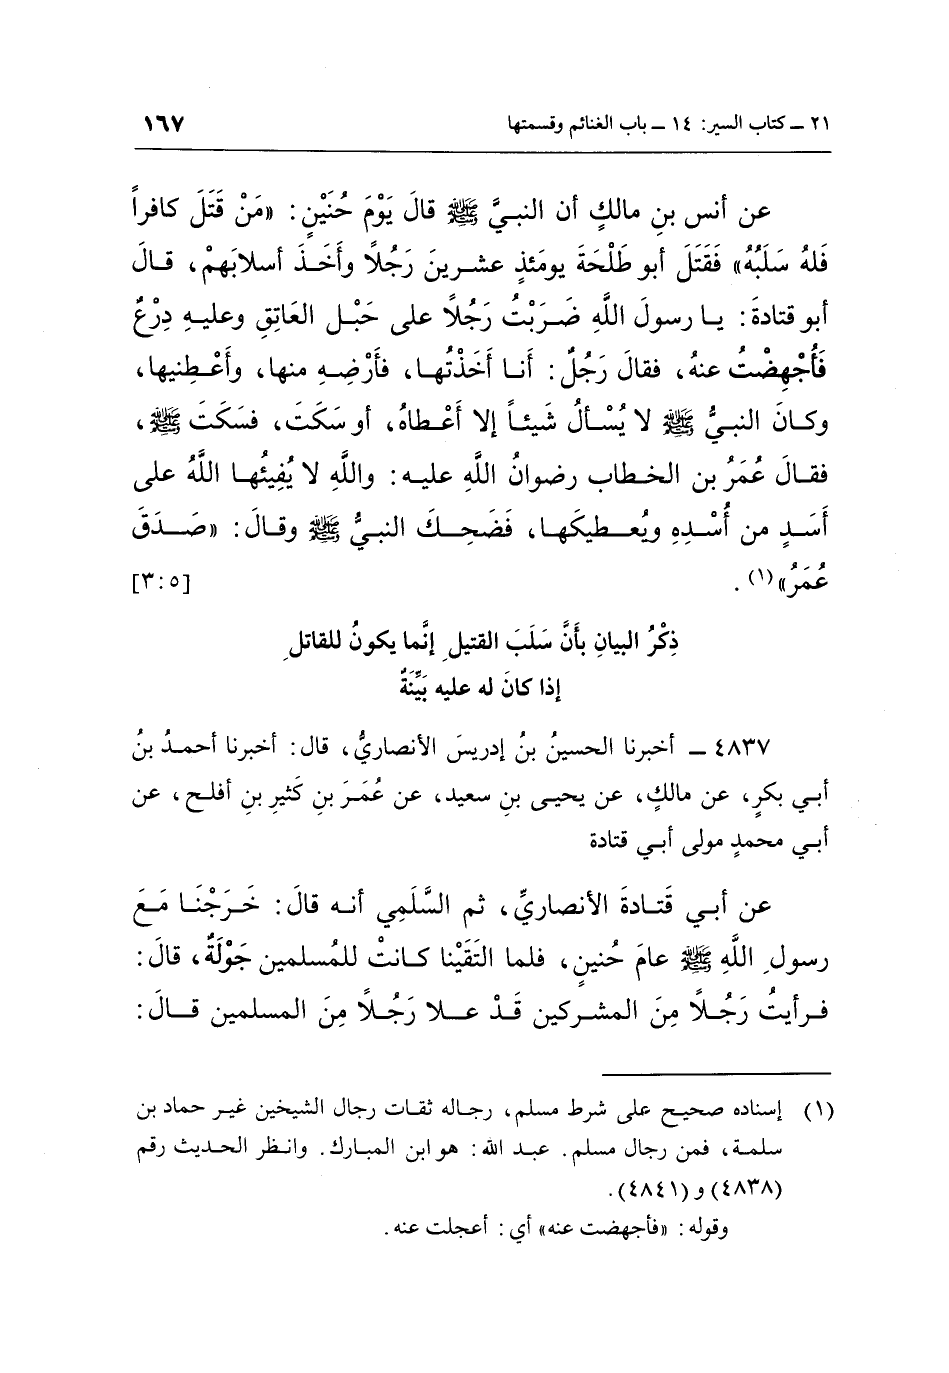 ٢١ ــ كتاب السير: ١٤ ــ باب الغنائم وقسمتها ١٦٧
عن أنس بنِ مالكٍ أن النبيَّ ﷺ قالَ يَوْمَ حُنَيْنٍ: «مَنْ قَتَلَ كافراً
فَلهُ سَلَبُهُ» فَقَتَلَ أبو طَلْحَةَ يومَئذٍ عشرينَ رَجُلاً وأَخَذَ أسلابَهمْ، قالَ
أبو قتادةَ: يا رسولَ اللَّهِ ضَرَبْتُ رَجُلاً على حَبْلِ العَاتِقِ وعليهِ دِرْعٌ
فَأُجْهِضْتُ عنهُ، فقالَ رَجُلٌ: أنا أَخَذْتُها، فأَرْضِهِ منها، وأَعْطِنيها،
وكانَ النبيُّ ﷺ لا يُسْألُ شَيئاً إلا أَعْطاهُ، أو سَكَتَ، فسَكَتَ ﷺ،
فقالَ عُمَرُ بن الخطاب رضوانُ اللَّهِ عليه: واللَّهِ لا يُفِيئُها اللَّهُ على
أَسَدٍ من أُسْدِهِ ويُعطيكَها، فَضَحِكَ النبيُّ ﷺ وقالَ: «صَدَقَ
عُمَرُ»(١). [٣:٥]
ذِكْرُ البيانِ بأَنَّ سَلَبَ القتيلِ إنَّما يكونُ للقاتلِ
إذا كانَ له عليه بَيِّنَةٌ
٤٨٣٧ ــ أخبرنا الحسينُ بنُ إدريسَ الأنصاريُّ، قال: أخبرنا أحمدُ بنُ
أبي بكرٍ، عن مالكٍ، عن يحيى بنِ سعيد، عن عُمَرَ بنِ كَثيرِ بنِ أفلح، عن
أبي محمدٍ مولى أبي قتادة
عن أبي قَتادةَ الأنصاريِّ، ثم السَّلَمِي أنه قالَ: خَرَجْنَا مَعَ
رسولِ اللَّهِ ﷺ عامَ حُنينٍ، فلما التَقَيْنا كانتْ للمُسلمين جَوْلَةٌ، قالَ:
فرأيتُ رَجُلاً مِنَ المشركين قَدْ علا رَجُلاً مِنَ المسلمين قالَ:
(١) إسناده صحيح على شرط مسلم، رجاله ثقات رجال الشيخين غير حماد بن
سلمة، فمن رجال مسلم. عبد الله: هو ابن المبارك. وانظر الحديث رقم
(٤٨٣٨) و (٤٨٤١).
وقوله: «فأجهضت عنه» أي: أعجلت عنه.